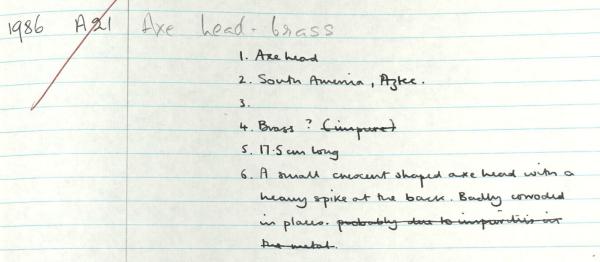 1986 A21 Axe head - brass
1. Axe head
2. South America, Aztec.
3.
4. Brass ? (impure)
5. 17.5 cm long
6. A small crescent shaped axe head with a
heavy spike at the back. Badly corroded
in places. probably due to impurities in
the metal.